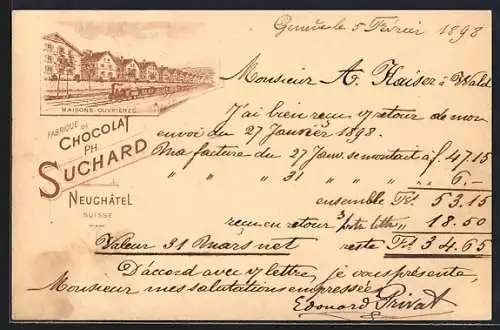 Genève le 5 Février 1898
MAISONS OUVRIÈRES
Monsieur A. Kaiser à Wald
FABRIQUE DE
CHOCOLAT
PH.
SUCHARD
NEUCHÂTEL
SUISSE
J'ai bien reçu en retour de mon
envoi du 27 Janvier 1898.
Ma facture du 27 Janv. se montait à f. 47.15
" " " 31 " " " " 6.-
ensemble Frs. 53.15
reçu en retour votre lettre " 18.50
Valeur 31 Mars net reste Frs. 34.65
D'accord avec lettre, je vous présente,
Monsieur mes salutations empressées
Edouard Privat